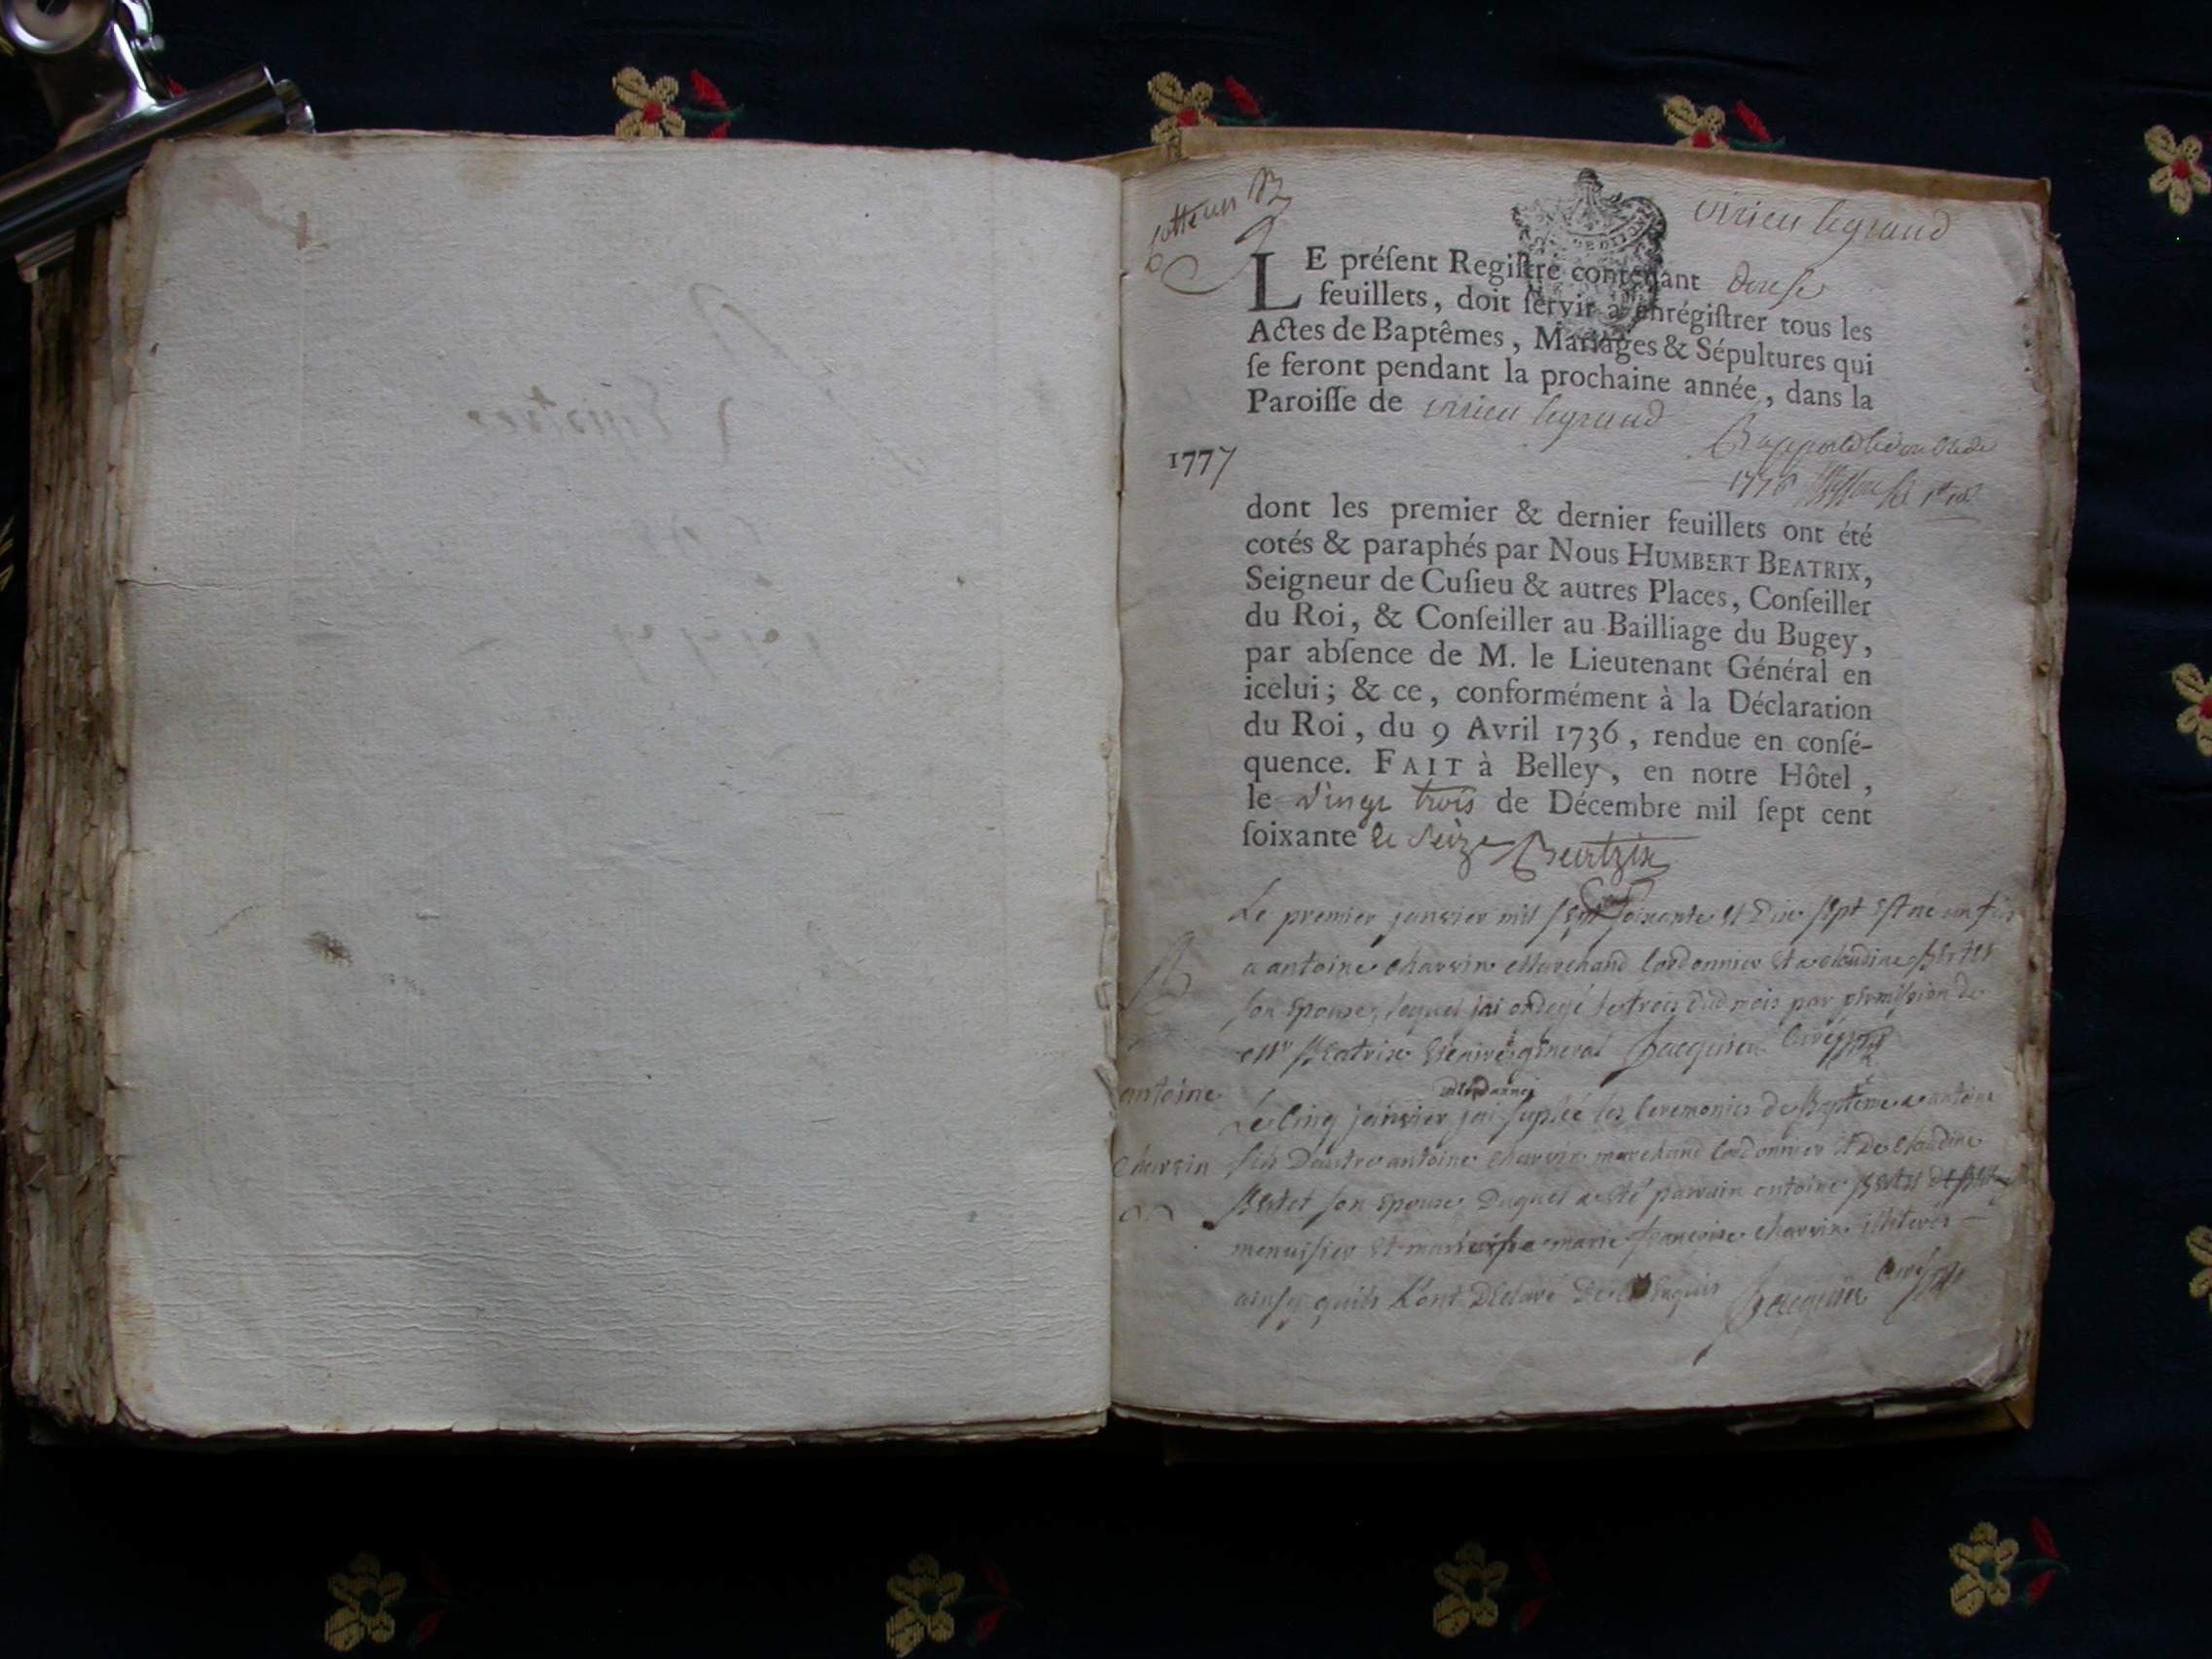 cotte un
virieu legrand
LE préſent Regiſtre contenant douse
feuillets, doit ſervir à enrégiſtrer tous les
Actes de Baptêmes, Mariages & Sépultures qui
ſe feront pendant la prochaine année, dans la
Paroiſſe de virieu legrand
1777
1776
dont les premier & dernier feuillets ont été
cotés & paraphés par Nous HUMBERT BEATRIX,
Seigneur de Cuſieu & autres Places, Conſeiller
du Roi, & Conſeiller au Bailliage du Bugey,
par abſence de M. le Lieutenant Général en
icelui; & ce, conformément à la Déclaration
du Roi, du 9 Avril 1736, rendue en conſé-
quence. FAIT à Belley, en notre Hôtel,
le vingt trois de Décembre mil ſept cent
ſoixante et seize Beatrix
Le premier janvier mil sept soixante et Dix sept est né un fils
a antoine charvin Marchand Cordonnier et a claudine Bertet
son Epouse, lequel jai ondoyé les trois dud mois par permission de
Mr Beatrix vicaire général Jacquier Curé
antoine
Le Cinq janvier jai supléé les Ceremonies de Baptême a antoine
charvin
fils D'autre antoine charvin marchand Cordonnier et De Claudine
Bertet son Epouse, Duquel a Eté parrain antoine Bertet
menuisier et marie françoise charvin illiterés
ainsy quils l'ont Déclaré De Requis Jacquier Curé